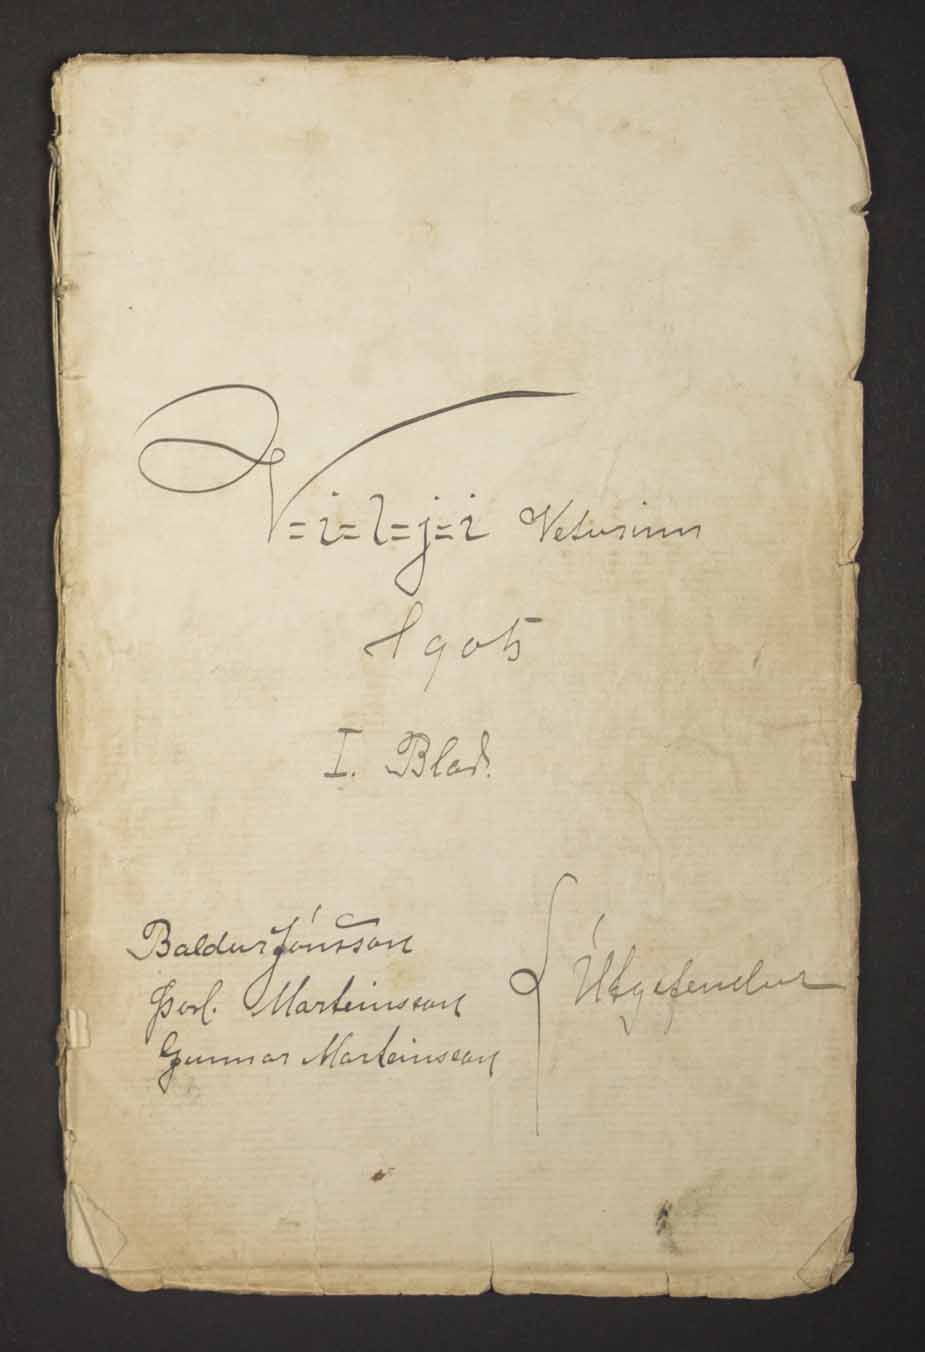 V=i=l=j=i Veturinn
1905
I. Blað.
Baldur Jónsson
Þorl. Marteinsson
Gunnar Marteinsson
Útgefendur